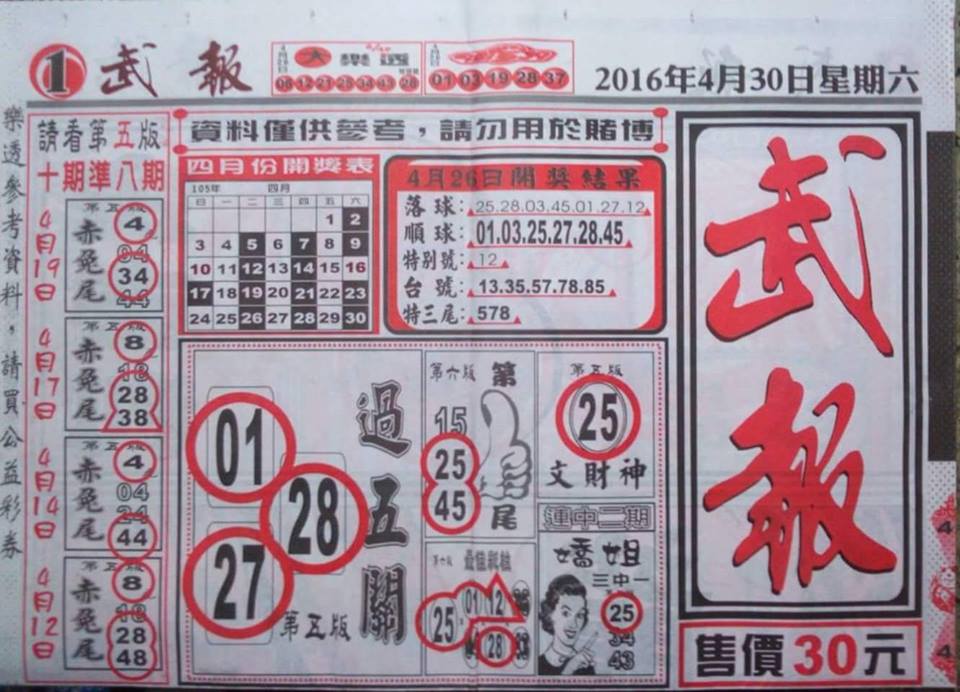 1 武報
08 12 21 25 34 43 28
01 03 19 28 37
2016年4月30日星期六
樂透參考資料，請買公益彩券
請看第五版
十期準八期
4月19日
第五版
赤兔尾
4
04
34
44
4月17日
第五版
赤兔尾
8
18
28
38
4月14日
第五版
赤兔尾
4
04
24
44
4月12日
第五版
赤兔尾
8
18
28
48
資料僅供參考，請勿用於賭博
四月份開獎表
105年 四月
日 一 二 三 四 五 六
1 2
3 4 5 6 7 8 9
10 11 12 13 14 15 16
17 18 19 20 21 22 23
24 25 26 27 28 29 30
4月26日開獎結果
落球：25.28.03.45.01.27.12
順球：01.03.25.27.28.45
特別號：12
台號：13.35.57.78.85
特三尾：578
過五關
01
28
27
第五版
第六版
第
15
25
45
尾
第五版
25
文財神
連中二期
嬌姐
三中一
25
34
43
第六版
25
01 12
28
武報
售價30元